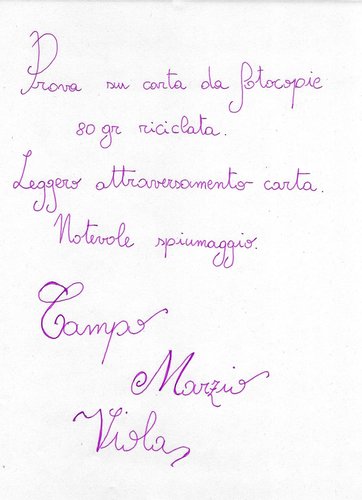 Prova su carta da fotocopie
80 gr riciclata.
Leggero attraversamento carta.
Notevole spiumaggio.
Campo
Marzio
Viola